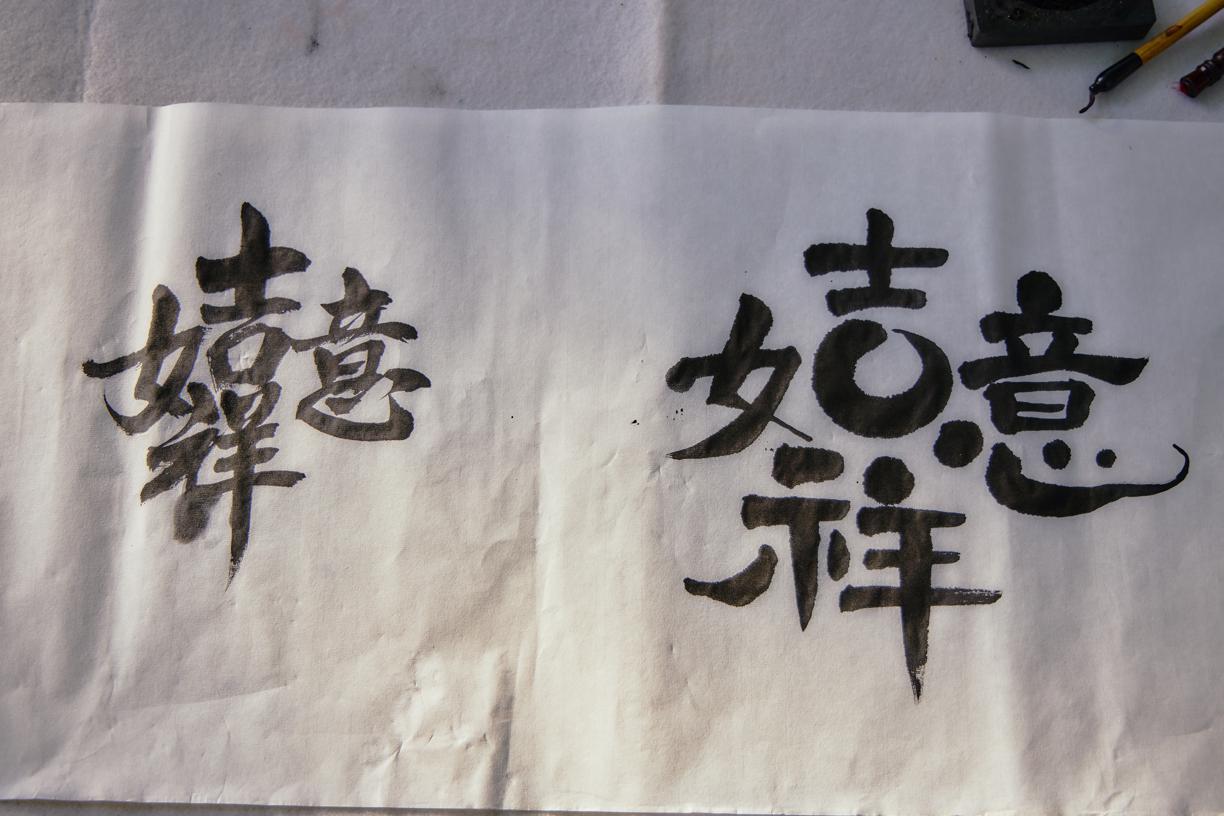 吉祥如意
吉祥如意